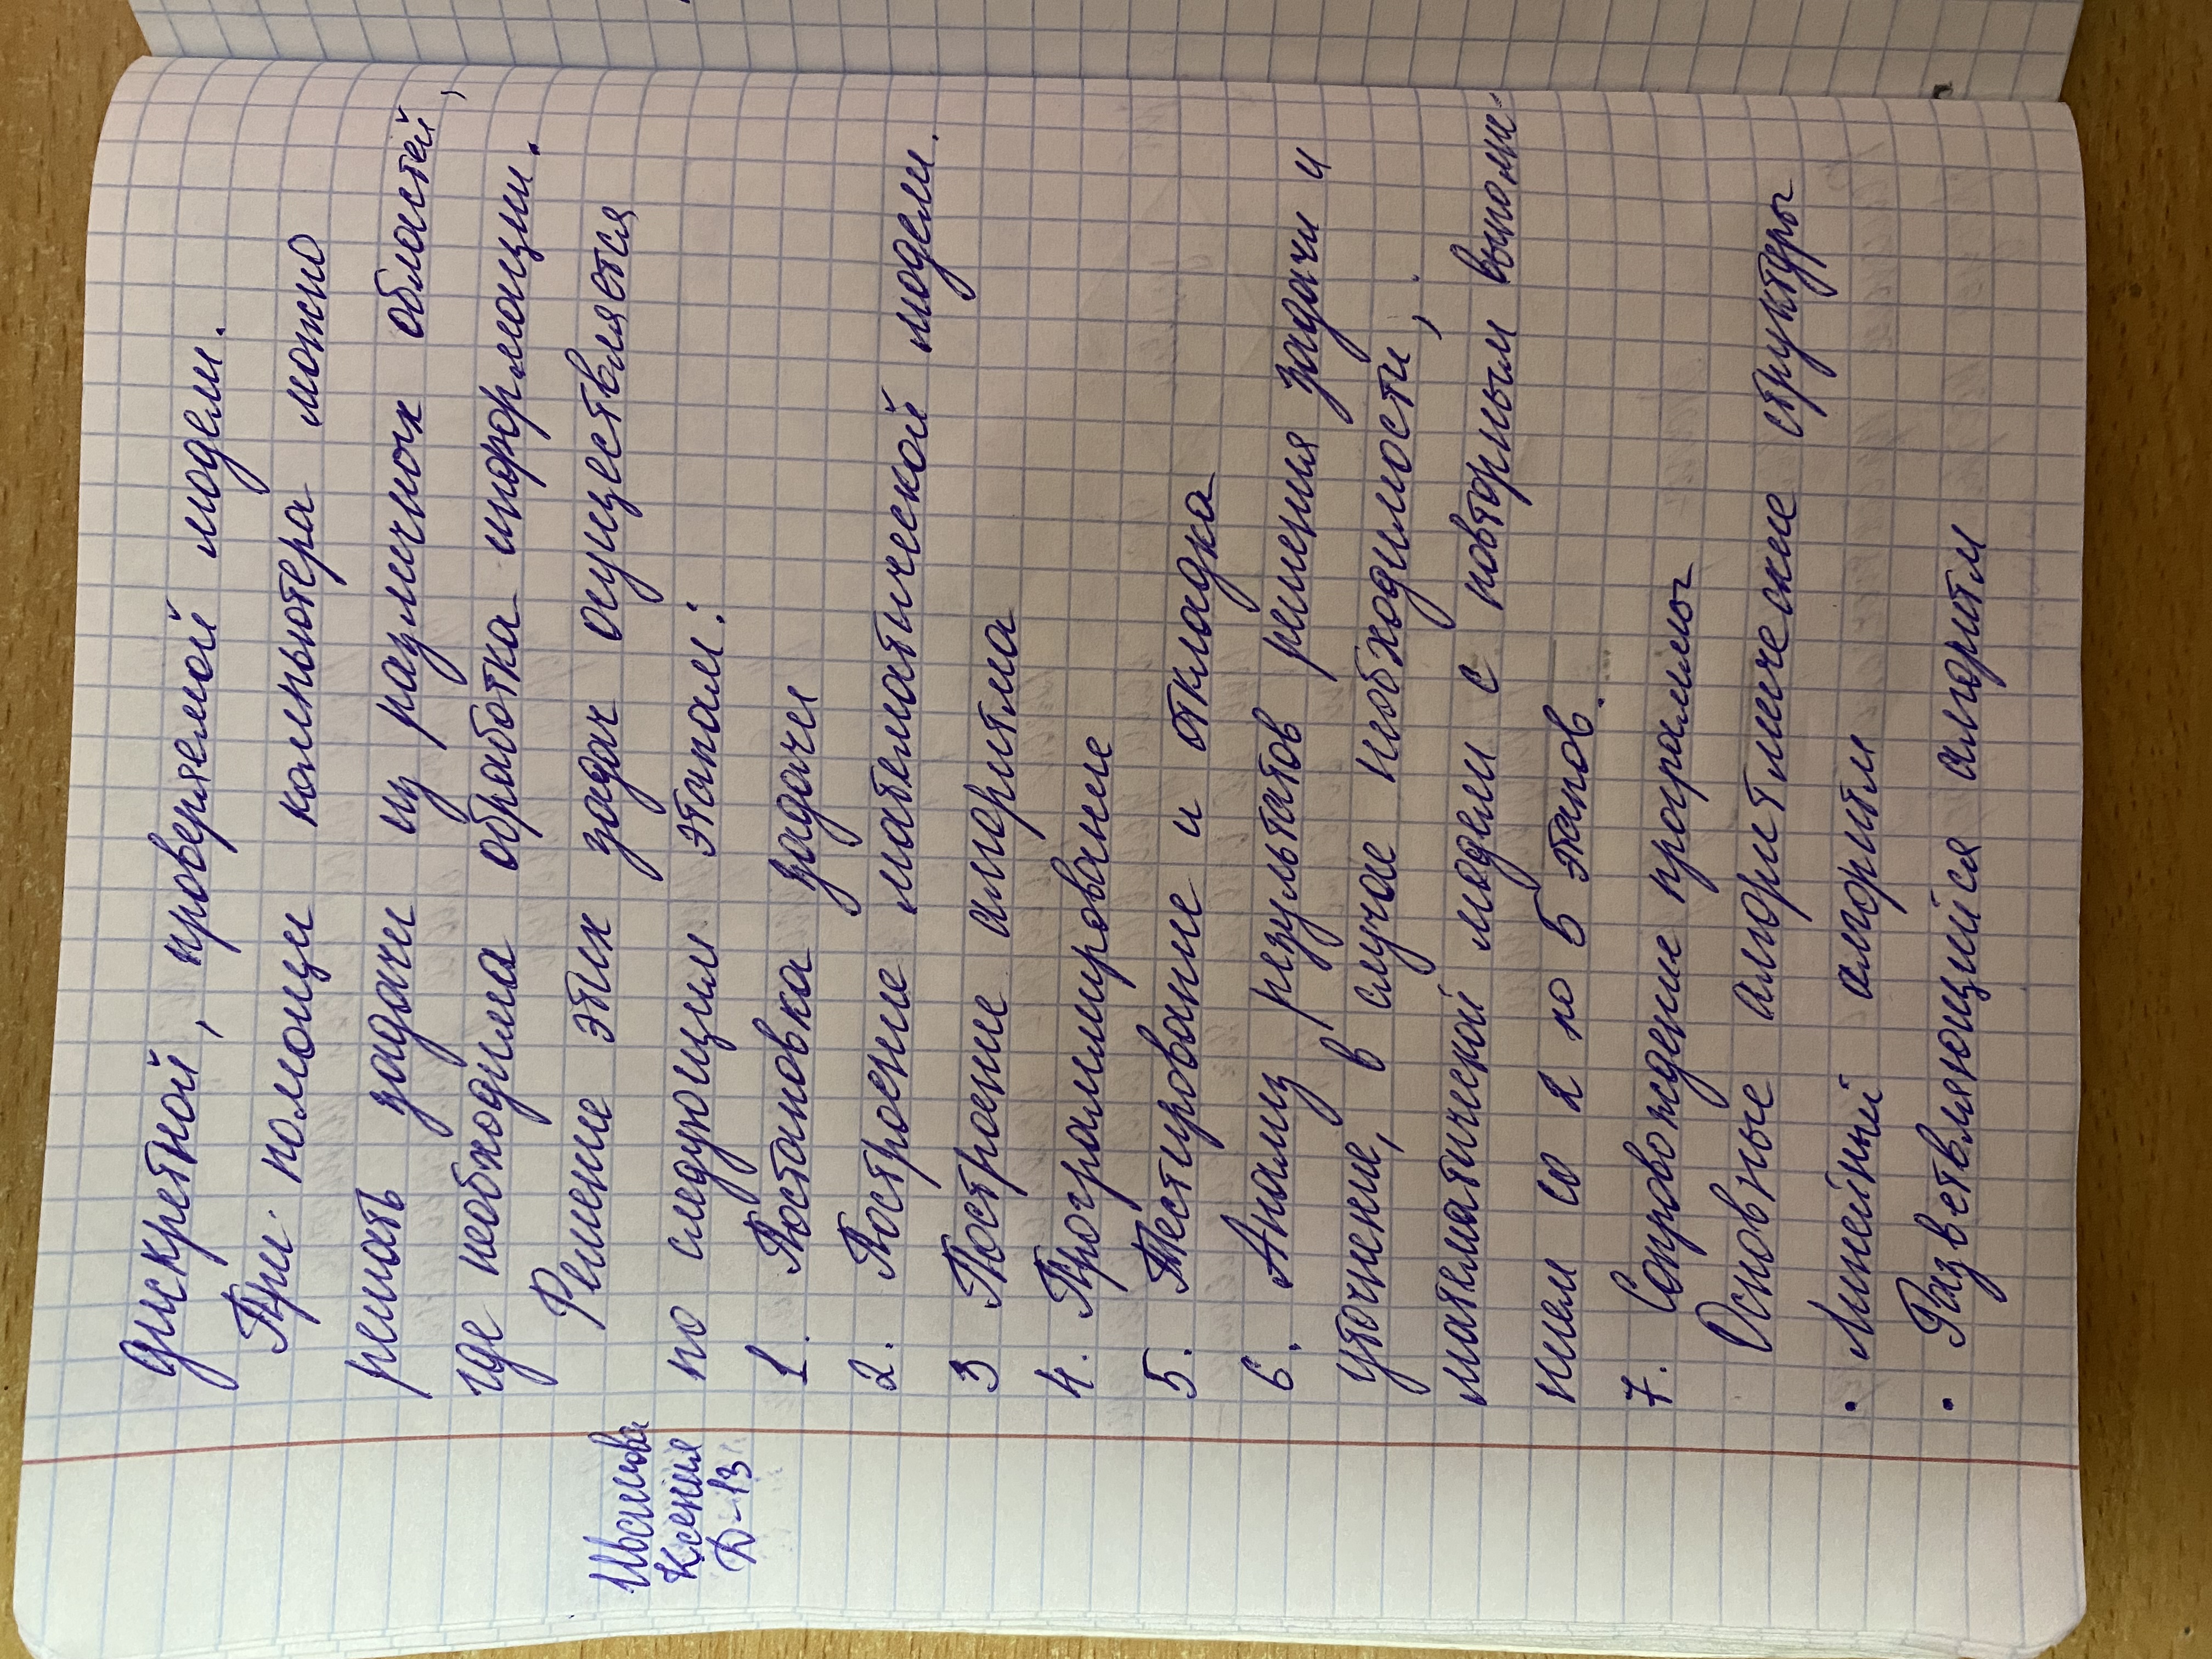 дискретной, проверяемой модели.
При помощи компьютера можно
решать задачи из различных областей,
где необходима обработка информации.
Решение этих задач осуществляется
по следующим этапам:
1. Постановка задачи
2. Построение математической модели.
3 Построение алгоритма
4. Программирование
5. Тестирование и откладка
6. Анализ результатов решения задачи и
уточнение, в случае необходимости,
математической модели с повторным выполне-
нием со 2 по 5 этапов.
7. Сопровождение программы
Основные алгоритмические структуры
• Линейный алгоритм
• Разветвляющийся алгоритм
Ксения
Д-13